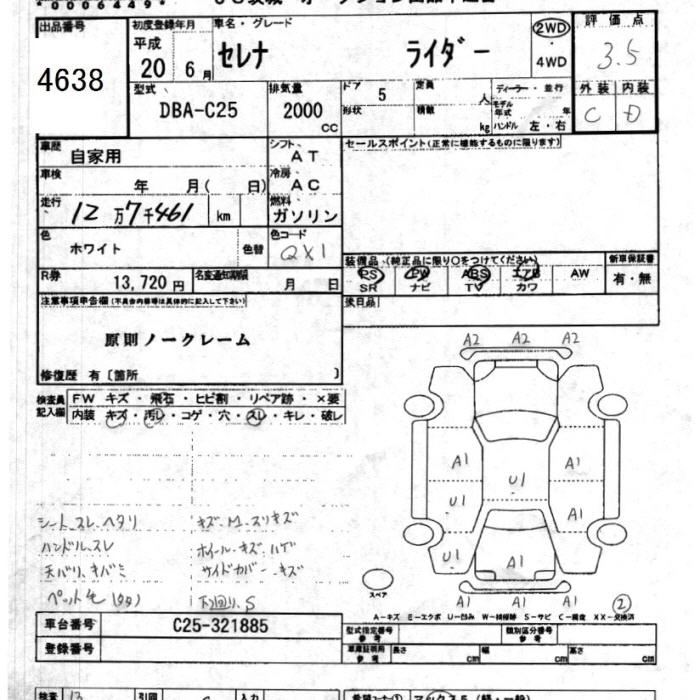 *0006449*
出品番号
4638
初度登録年月
平成
20 6月
車名・グレード
セレナ ライダー
2WD
・
4WD
評価点
3.5
型式
DBA-C25
排気量
2000
cc
ドア 5
形状
定員 人
積載 kg
ディーラー・並行
モデル年式 年
ハンドル 左・右
外装 内装
C D
車歴
自家用
シフト
AT
車検
年 月( 日)
冷房
AC
走行
12万7千461 km
燃料
ガソリン
色
ホワイト
色替
色コード
QX1
R券
13,720円
名変通知期限
月 日
セールスポイント(正常に機能するものに限ります)
装備品・(純正品に限り○をつけてください)
新車保証書
PS PW ABS エアB AW
SR ナビ TV カワ
有・無
後日品
注意事項申告欄(不具合内容等は具体的に記入して下さい)
原則ノークレーム
修復歴 有〔箇所 〕
検査員
記入欄
FW キズ・飛石・ヒビ割・リペア跡・×要
内装 キズ・汚レ・コゲ・穴・スレ・キレ・破レ
シートスレ、ヘタリ
ハンドルスレ
天バリ、キバミ
ペット毛
キズ・
ホイールキズ・ハゲ
サイドカバーキズ
下回り、S
A2 A2 A2
A1 A1
U1
U1 A1
U1 A1
A1 A1 A1
スペア
②
A-キズ E-エクボ U-凹み W-補修跡 S-サビ C-腐食 XX-交換済
車台番号
C25-321885
登録番号
型式指定番号
参考
類別区分番号
参考
車庫証明用
参考
長さ cm
幅 cm
高さ cm